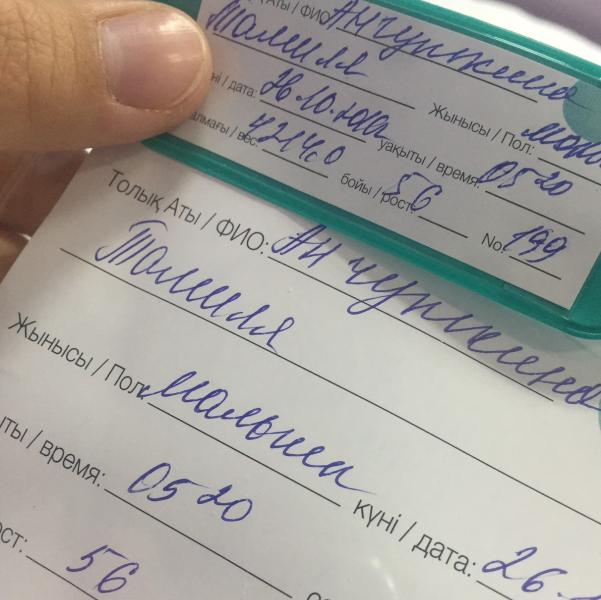 Аты / ФИО Анчупкина
Тамилля
ні / дата: 26.10. Жынысы / Пол:
алмағы / вес: уақыты / время: 05 20
бойы / рост: 56 No: 199
Толық Аты / ФИО: Анчупкина
Тамилля
Жынысы / Пол: мальчик
ты / время: 05 20 күні / дата: 26.
ост: 56